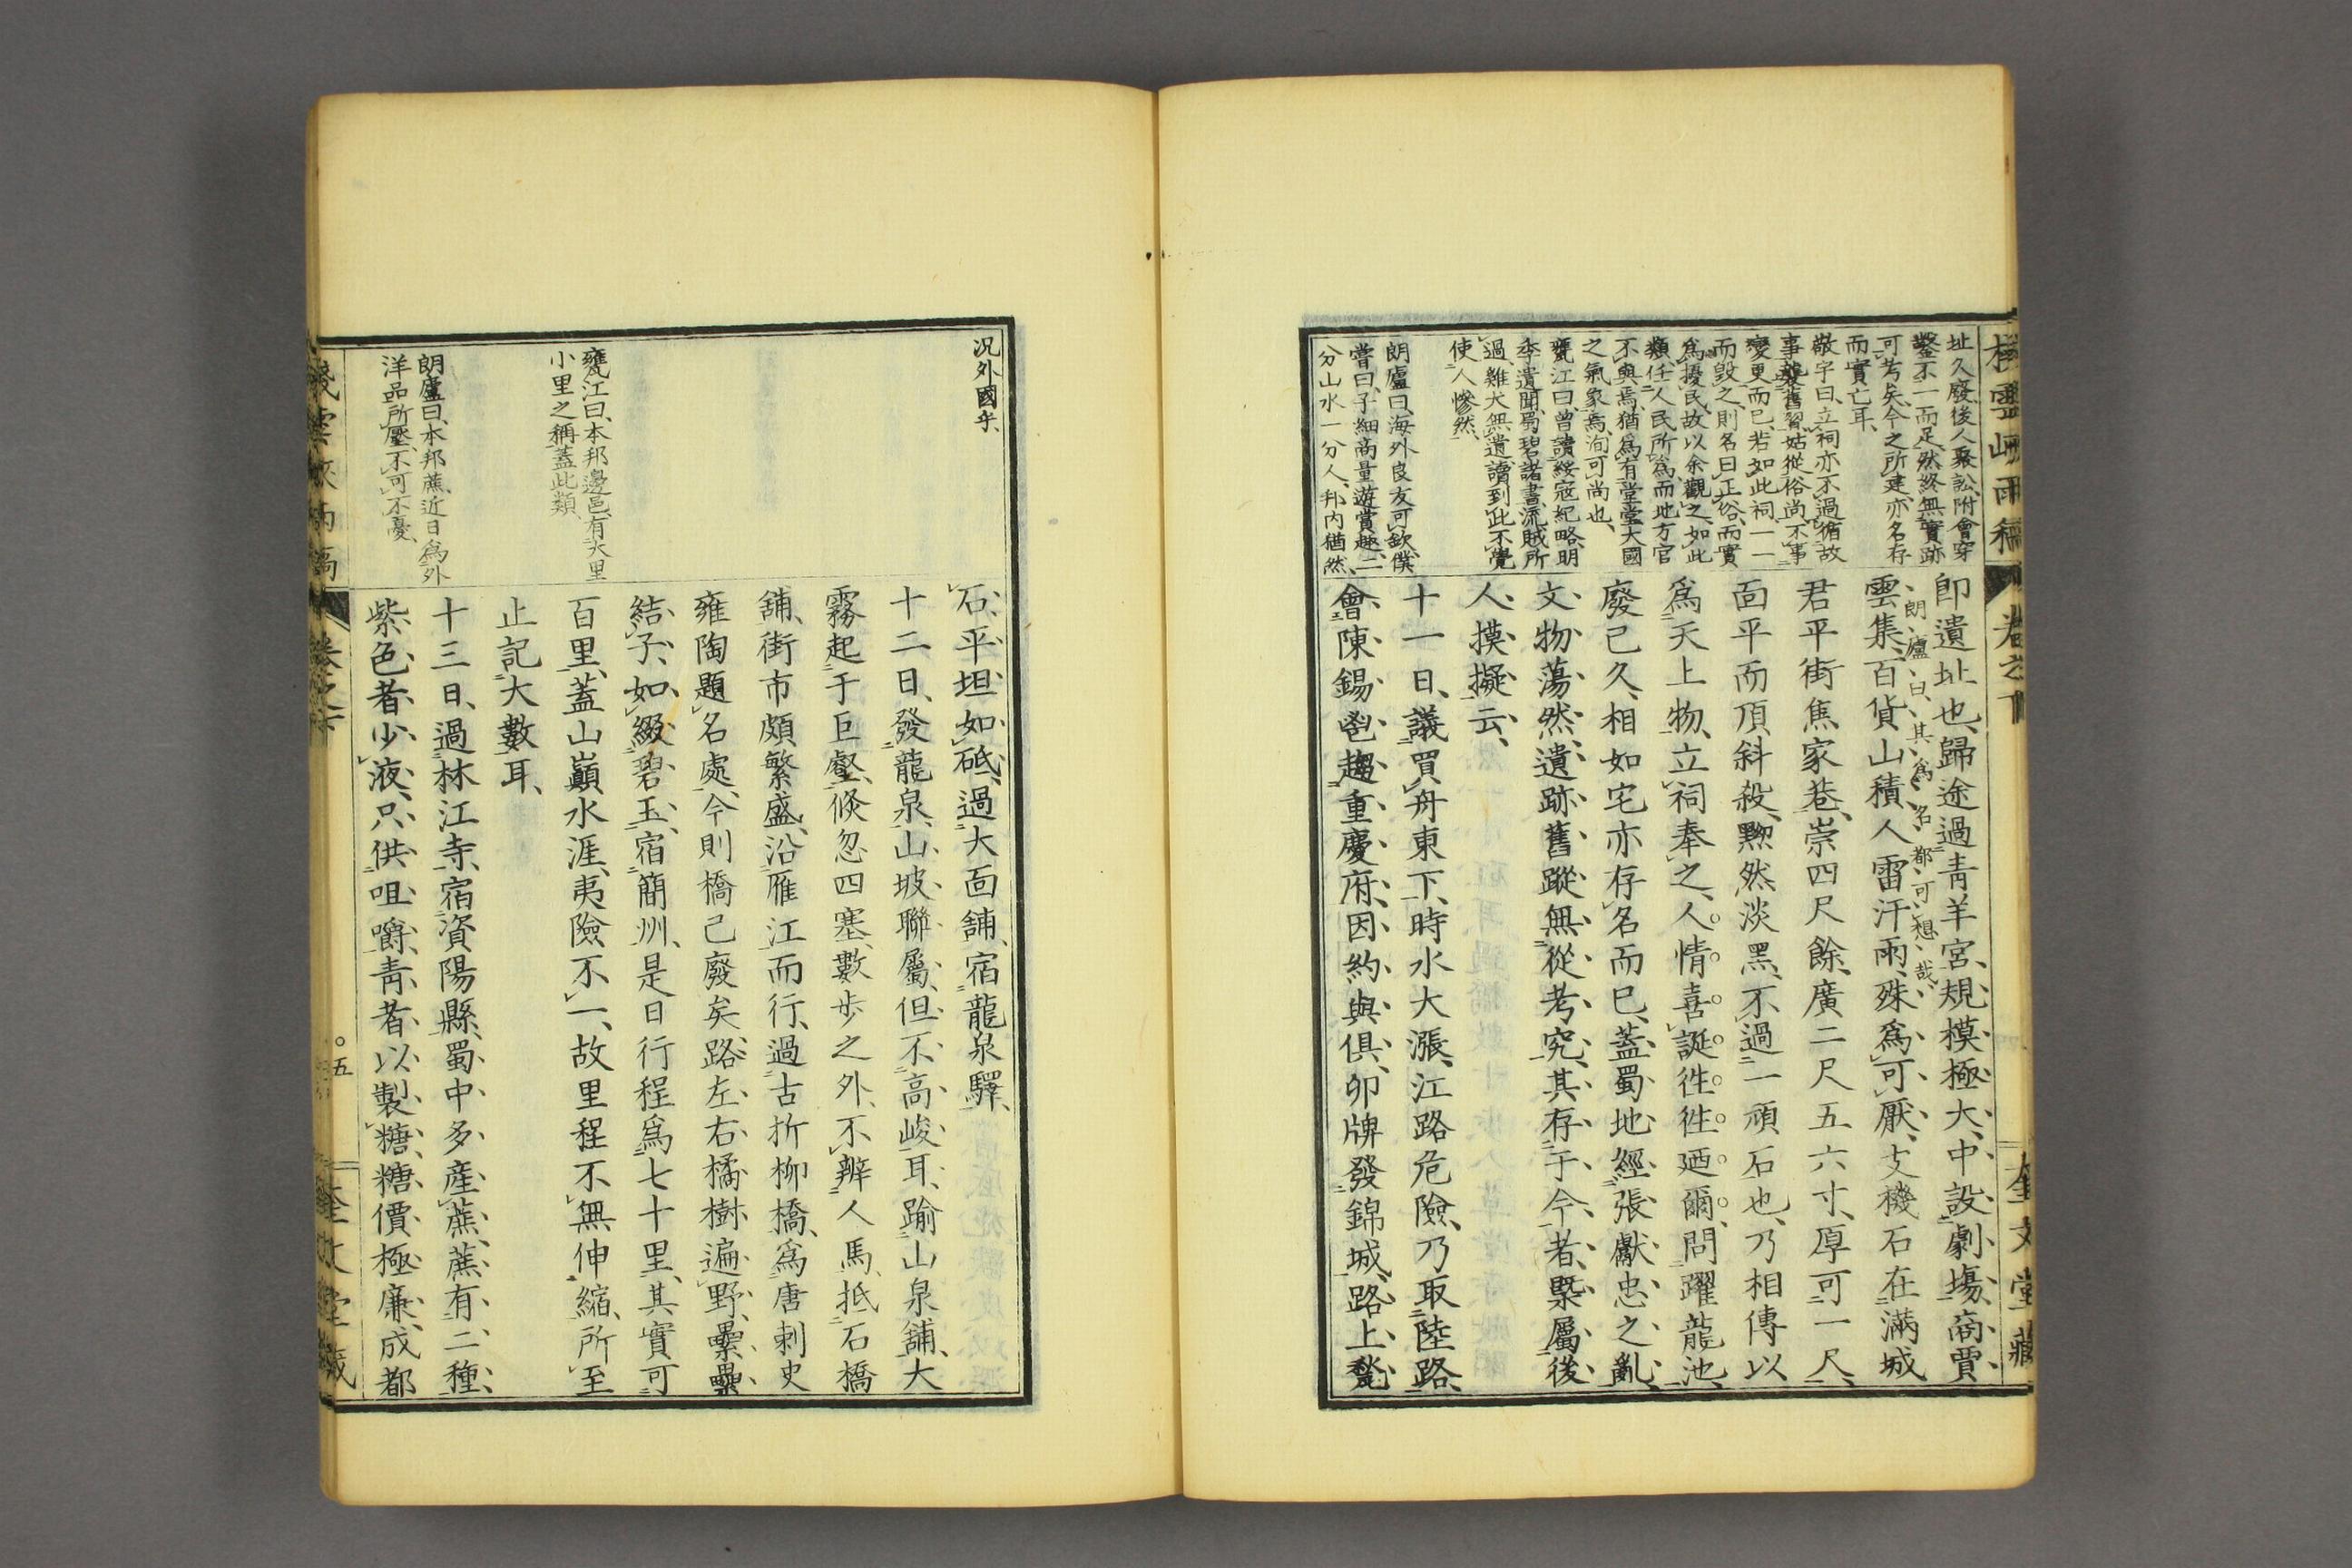 棧雲峽雨稿
卷之下
奎文堂藏
址久廢、後人聚訟、附會穿
鑿、不一而足、然終無實跡
可考矣、今之所建、亦名存
而實亡耳、
敬宇曰、立祠亦不過循故
事、襲舊習、姑從俗尚、不事
變更而已、若如此祠、一一
而毀之、則名曰正俗、而實
爲擾民、故以余觀之、如此
類、任人民所爲、而地方官
不與焉、猶爲有堂堂大國
之氣象焉、洵可尚也、
甕江曰、曾讀綏寇紀略、明
季遺聞、蜀碧諸書、流賊所
過、雞犬無遺、讀到此、不覺
使人慘然、
朗廬曰、海外良友可欽、僕
嘗曰、子細商量遊賞趣、二
分山水一分人、邦內猶然、
卽遺址也、歸途過靑羊宮、規模極大、中設劇塲、商賈
朗廬曰、其爲名都可想哉、
雲集、百貨山積、人雷汗雨、殊爲可厭、支機石在滿城
君平街焦家巷、崇四尺餘、廣二尺五六寸、厚可一尺、
面平而頂斜殺、黝然淡黑、不過一頑石也、乃相傳以
爲天上物、立祠奉之、人情喜誕、徃徃廼爾、問躍龍池、
廢已久、相如宅亦存名而已、蓋蜀地經張獻忠之亂、
文物蕩然、遺跡舊蹤、無從考究、其存于今者、槩屬後
人摸擬云、
十一日、議買舟東下、時水大漲、江路危險、乃取陸路、
會陳錫鬯趨重慶府、因約與俱、卯牌發錦城、路上甃
况外國乎、
甕江曰、本邦邊邑、有大里
小里之稱、蓋此類、
朗廬曰、本邦蔗、近日爲外
洋品所壓、不可不憂、
石、平坦如砥、過大面舖、宿龍泉驛、
十二日、發龍泉、山坡聯屬、但不高峻耳、踰山泉舖、大
霧起于巨壑、倐忽四塞、數步之外、不辨人馬、抵石橋
舖、街市頗繁盛、沿雁江而行、過古折柳橋、爲唐刺史
雍陶題名處、今則橋已廢矣、路左右橘樹遍野、纍纍
結子、如綴碧玉、宿簡州、是日行程爲七十里、其實可
百里、蓋山巓水涯、夷險不一、故里程不無伸縮、所至
止記大數耳、
十三日、過林江寺、宿資陽縣、蜀中多産蔗、蔗有二種、
紫色者少液、只供咀嚼、靑者以製糖、糖價極廉、成都
棧雲峽雨稿
卷之下
五
奎文堂藏